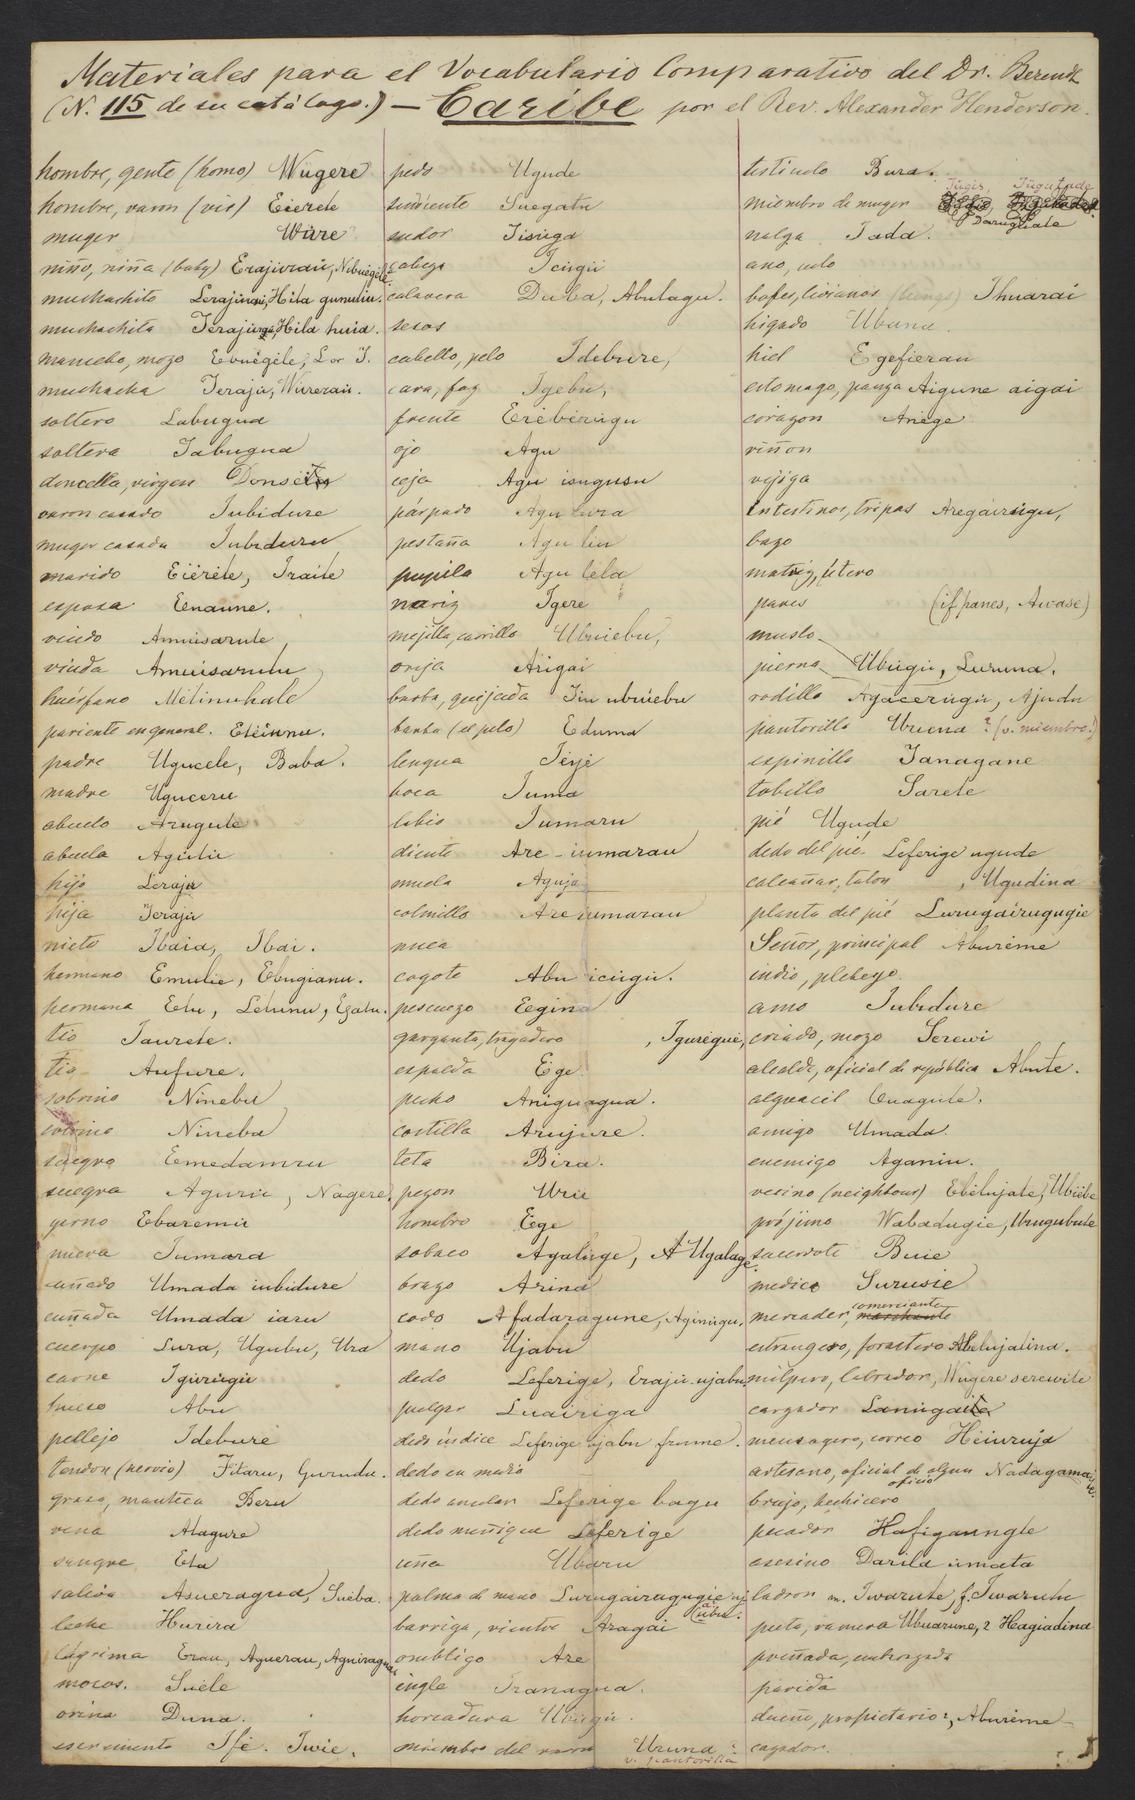 Materiales para el Vocabulario Comparativo del Dr. Berendt
(N. 115 de su catálogo.) — Caribe por el Rev. Alexander Henderson.
hombre, gente (homo) Wügere
hombre, varon (vir) Eierele
muger Würe
niño, niña (baby) Erajürau, Nibuegile
muchachito Lerajürai, Hila gunulin.
muchachita Terajüga, Hila huia.
mancebo, mozo Ebuégéle, L or T.
muchacha Teraju, Würerau.
soltero Labugua
soltera Tabugua
doncella, virgen
varon casado Iubidure
muger casada Iubiduru
marido Eiérele, Iraite
esposa Eenaune.
viudo Amuisarute
viuda Amuisarulu
huérfano Mélinuhale
pariente en general. Eléinnu.
padre Ugucele, Baba.
madre Uguceru
abuelo Arugute
abuela Agütü
hijo Leraju
hija Teraju
nieto Ibaia, Ibai.
hermano Emulie, Ebugianu.
hermana Etu, Letunu, Egatu.
tio Iaurete.
tia Aufure.
sobrino Ninebu
Nineba
suegro Emedamru
suegra Agurie, Nagere.
yerno Ebaremu
nuera Iumara
cuñado Umada iubidure
cuñada Umada iaru
cuerpo Lura, Ugubu, Ura
carne Igurügü
hueso Abu
pellejo Idebure
tendon (nervio) Fitaru, Gurudu.
graso, manteca Beru
vena Alagure
sangre Eta
saliva Asueragua, Suéba.
leche Hurira
lágrima Erau, Aguerau, Aguiragua
mocos. Suéle
orina Duna.
escremento Ifé. Iwie.
pedo Ugude
Suegatu
sudor Iisüga
cabeza Icügü
calavera Daba, Abulagu.
sesos
cabello, pelo Idebure,
cara, faz Igebu,
frente Erébérügu
ojo Agu
ceja Agu isugusu
párpado Agu lura
pestaña Agu liu
pupila Agu léla
nariz Igere
mejilla, carrillo Ubuiebu,
oreja Arigai
barba, quijada Iiu ubuébu
barba (el pelo) Eduma
lengua Iéyé
boca Iuma
labio Iumaru
diente Are-iumarau
muela Aguja
colmillo Are iumarau
nuca
cogote Abu icügü.
pescuezo Eegina
garganta, tragadero , Igurégué,
espalda Ege
pecho Aniguagua.
costilla Arujure.
teta Bira.
pezon Urie
hombro Ege
sobaco Agaliige, A Ugalage
brazo Arina
codo A fadaragune, Aginügu.
mano Ujabu
dedo Leferige, Eraju ujabu
pulgar Luairiga
dedo índice Leferige ujabu frume.
dedo en medio
dedo anular Leferige bagu
dedo meñique Leferige
uña Ubaru
palma de mano Lurugairagugie uj
abu.
barriga, vientre Aragai
ombligo Are
ingle Iranagua.
horcadura Ubügü.
miembro del varon Uruna?
v. pantorilla
testiculo Bura.
Jügir, Jügutade
miembro de muger
Darugilate
nalga Iada.
ano, culo
bofes, livianos (lungs) Ihuarai
higado Ubana.
hiel Egefierau
estomago, panza Aigune aigai
corazon Anége
riñon
vejiga
intestinos, tripas Aregairügu,
bazo
matriz, útero
panes (if panes, Awase)
muslo
pierna Übügü, Luruna.
rodilla Agacerügü, Ajudu
pantorilla Uruena? (v. miembro.)
espinilla Ianagane
tobillo Sarele
pié Ugude
dedo del pié Leferige ugude
calcañar, talon , Ugudina
planta del pié Lurugairugugie
Señor, principal Aburéme
indio, plebeyo.
amo Iubidure
criado, mozo Serewi
alcalde, oficial de república Abute.
alguacil Guagule.
amigo Umada.
enemigo Aganiu.
vecino (neighbour) Ebélujate, Ubiébe
prójimo Wabadugie, Urugubute
sacerdote Buie
medico Surusie
comerciante
mercader, marchante
estrangero, forastero Abelujalina.
milpero, labrador, Wügere serewite
cargador
mensagero, correo Heiuruja
artesano, oficial de algun Nadagamai
oficio
brujo, hechicero
pecador Hafigaungle
asesino Darila umata
ladron m. Iwarute, f. Iwarutu
puta, ramera Ubuarune, 2 Hagiadina
preñada, embarazada
parida
dueño, propietario, Aburéme
cazador.